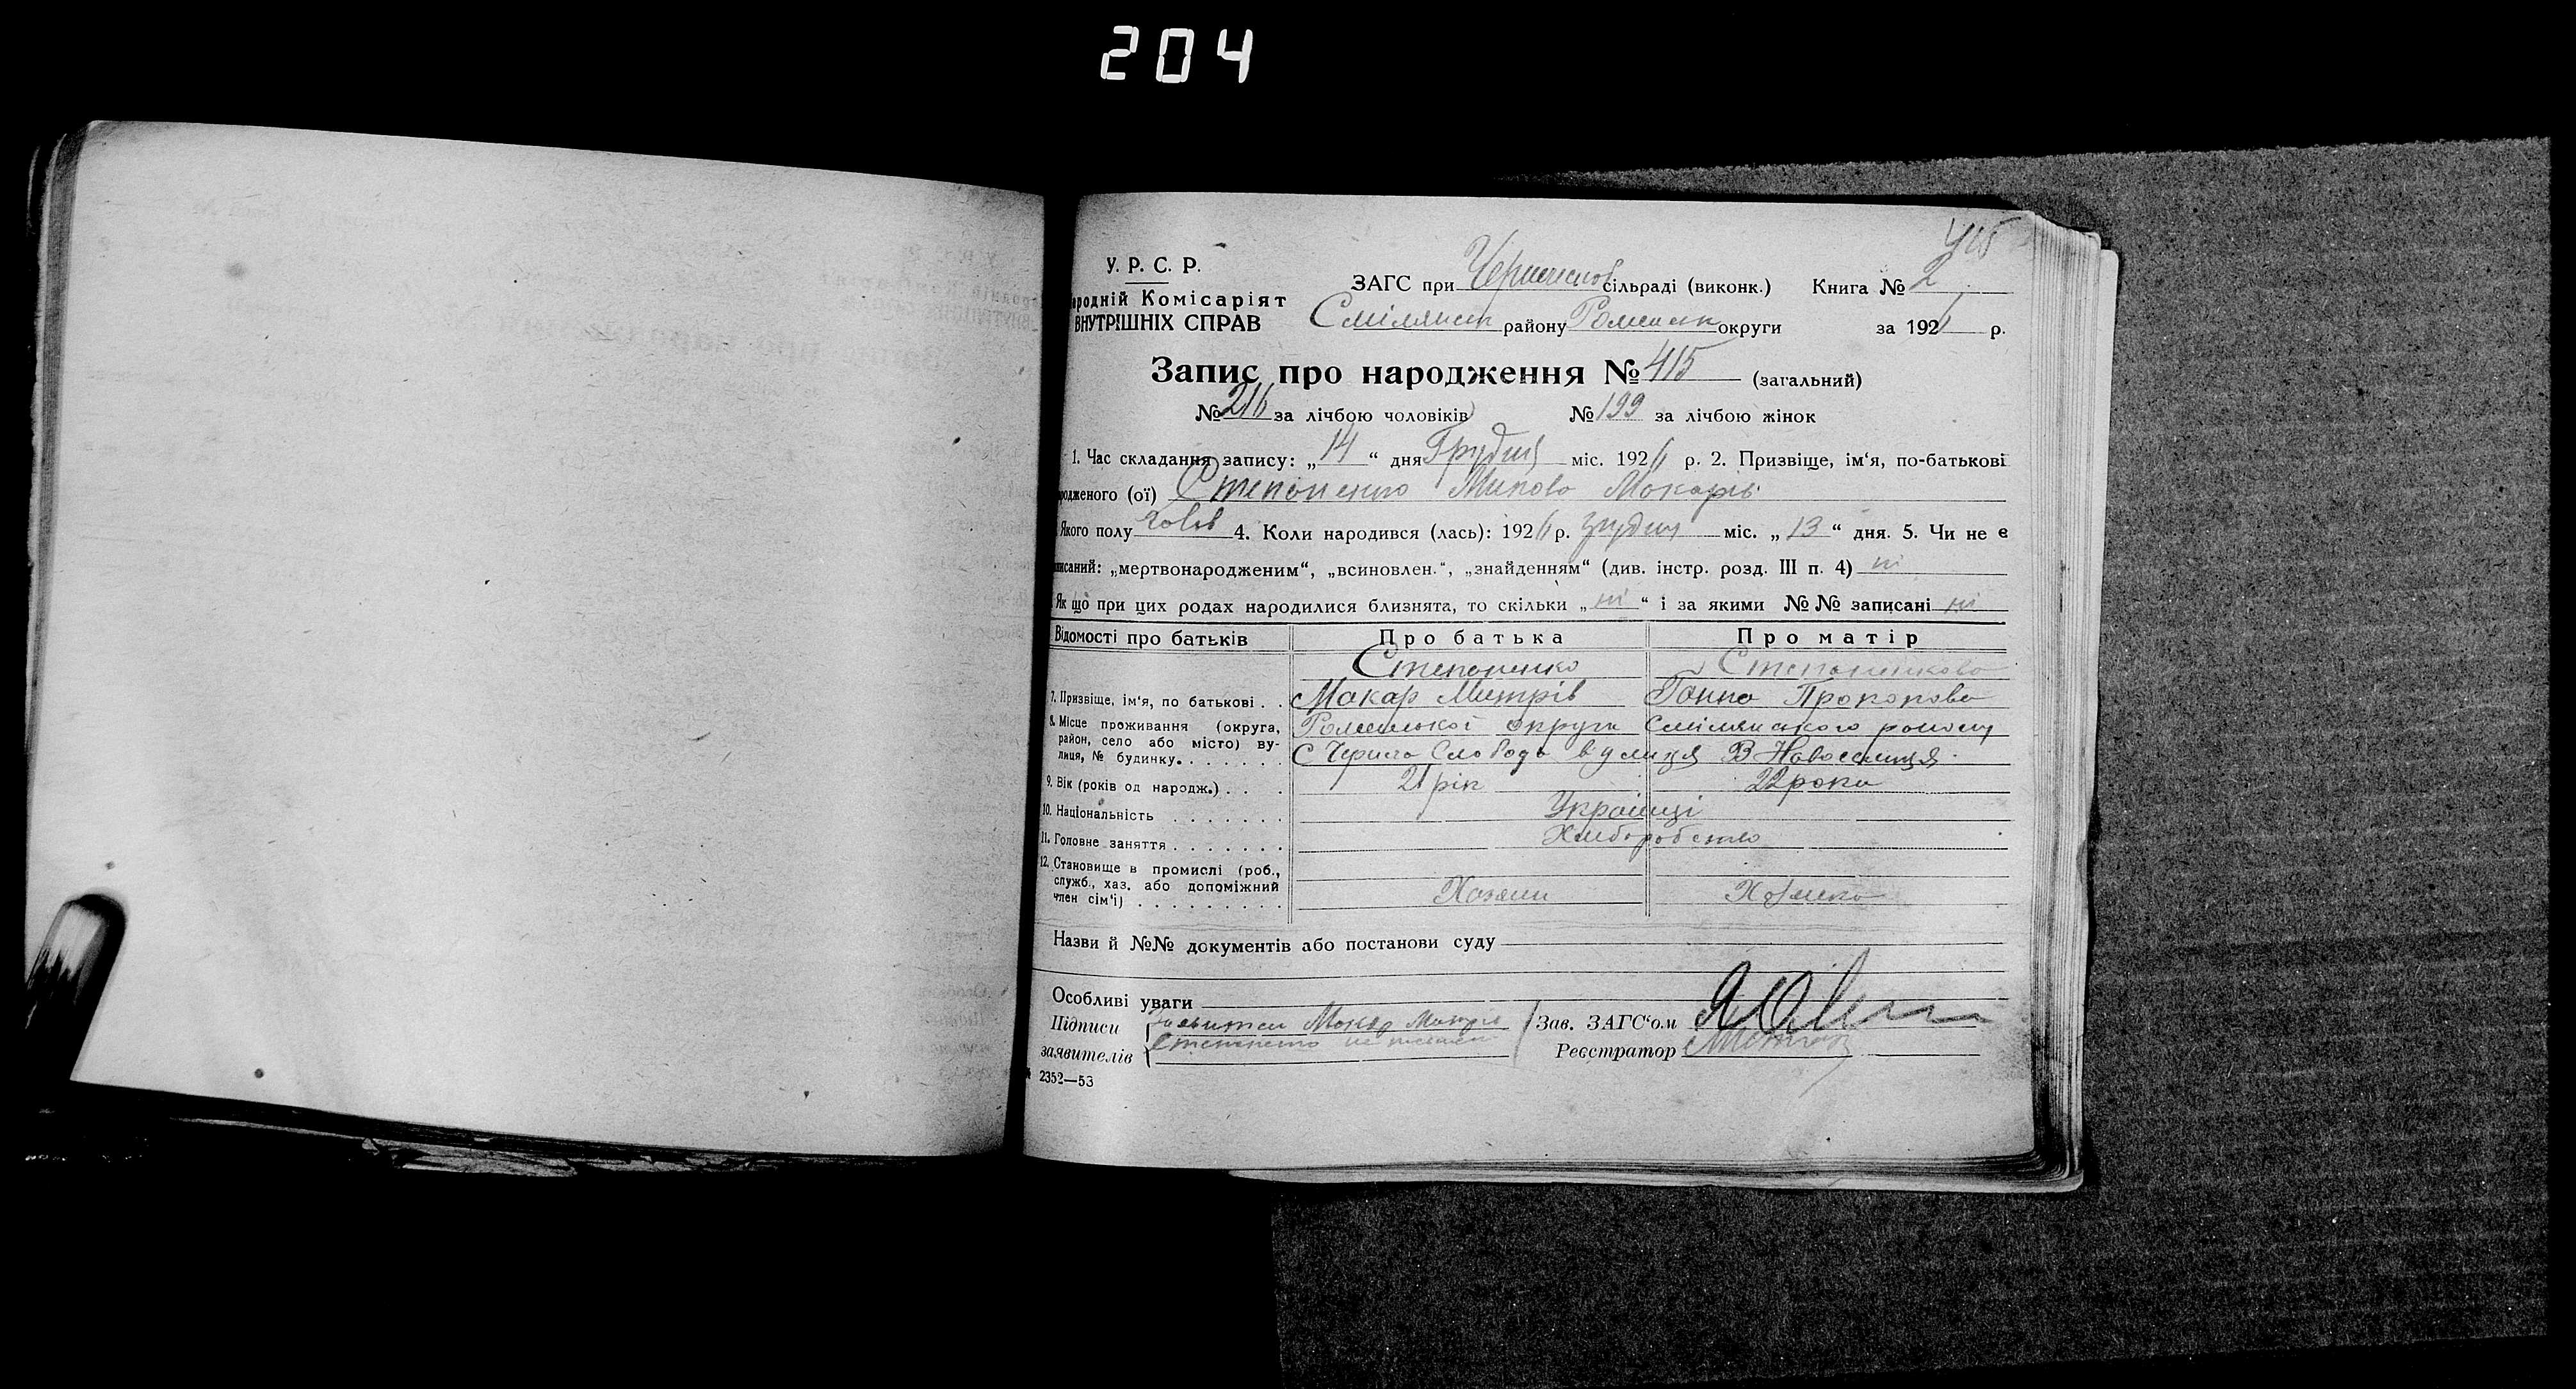 204
415
У. Р. С. Р.
родній Комісаріят
ВНУТРІШНІХ СПРАВ
ЗАГС при сільраді (виконк.) Книга № 2
Смілянськ району Роменськ округи за 192 р.
Запис про народження № 415 (загальний)
№ 216 за лічбою чоловіків № 199 за лічбою жінок
1. Час складання запису: „ 14 “ дня Грудня міс. 192 р. 2. Призвіще, ім‘я, по-батькові
родженого (ої) Степоненко Микола Мокарів
Якого полу 4. Коли народився (лась): 192 р. грудня міс. „ 13 “ дня. 5. Чи не є
писаний: „мертвонародженим“, „всиновлен.“, „знайденням“ (див. інстр. розд. III п. 4) ні
Як що при цих родах народилися близнята, то скільки „ ні “ і за якими №№ записані ні
Відомості про батьків Про батька Про матір
Степоненко Степоненкова
7. Призвіще, ім‘я, по батькові . . Макар Митрів Ганна Прокопова
8. Місце проживання (округа, район, село або місто) вулиця, № будинку. Роменської округи Смілянського району
С Черича Слобода вулиця В Новоселиця
9. Вік (років од народж.) . . . 21 рік 22 роки
10. Національність Українці
11. Головне заняття Хліборобство
12. Становище в промислі (роб.,
служб., хаз. або допоміжний
член сім‘ї) Хозяин Хозяйка
Назви й №№ документів або постанови суду
Особливі уваги
Підписи Мокар Митрів Зав. ЗАГС‘ом
заявителів Степоненко Реєстратор
2352—53